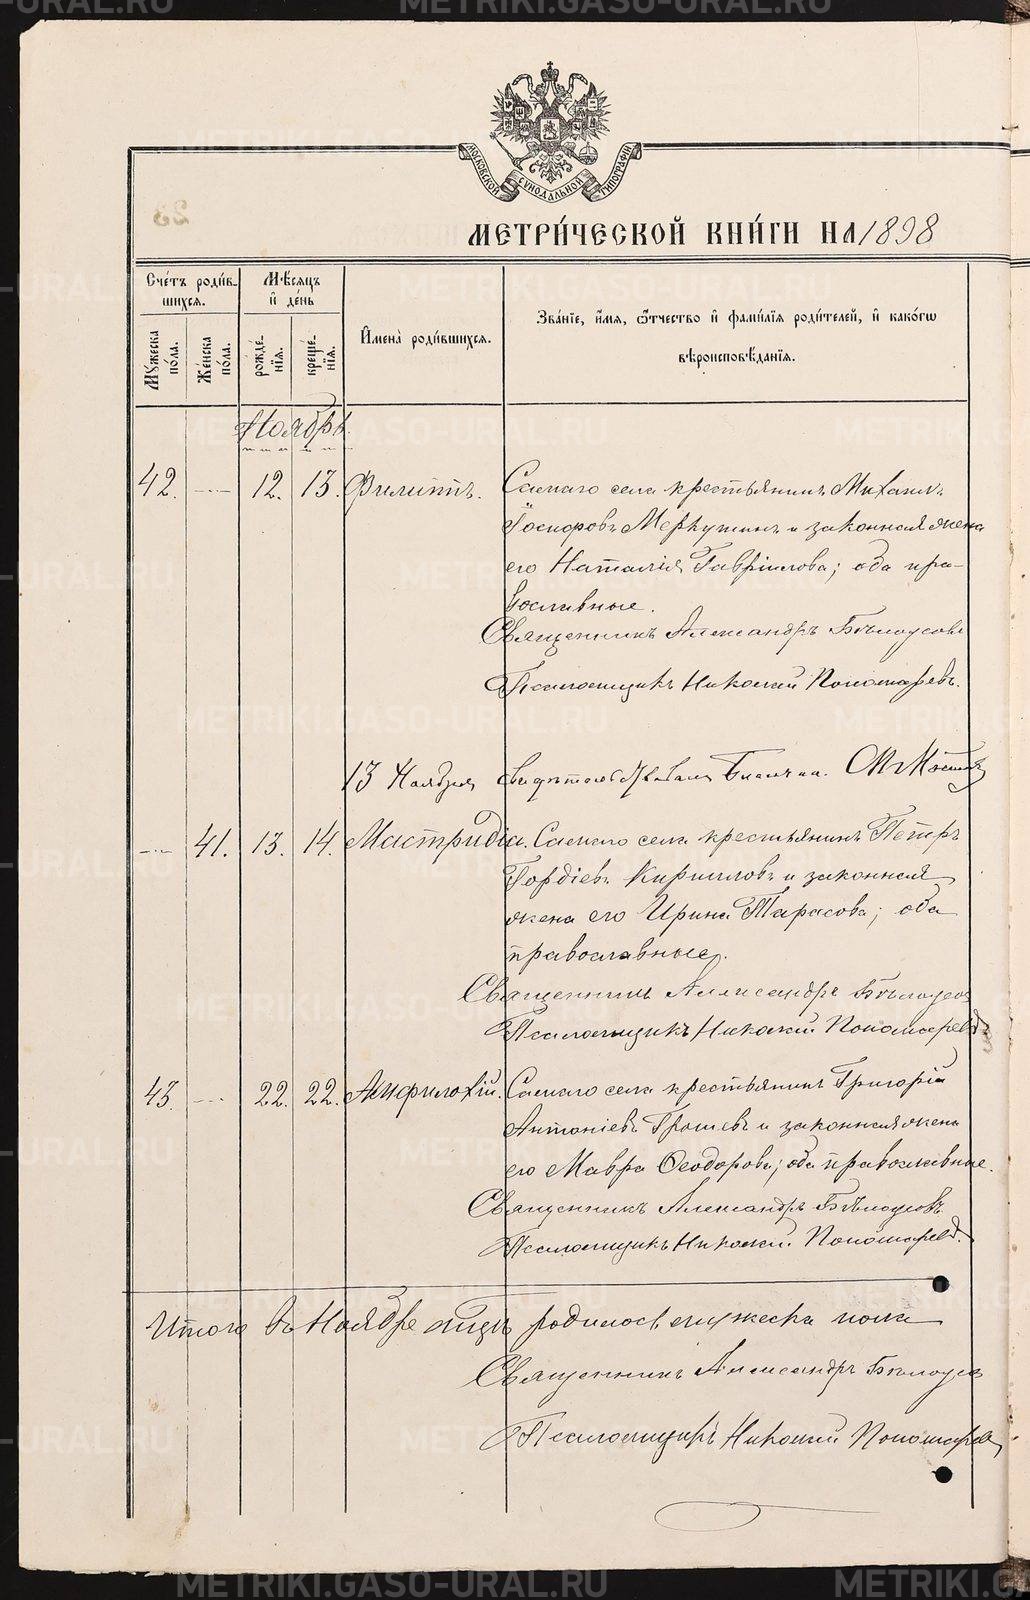 METRIKI.GASO-URAL.RU
МОСКОВСКОЙ СѴНОДАЛЬНОЙ ТИПОГРАФІИ
МЕТРИ́ЧЕСКОЙ КНИ́ГИ НА 1898
Сче́тъ роди́в-
шихся.
Мѣ́сяцъ
и҆ де́нь
Мꙋ́жеска по́ла.
Же́нска по́ла.
рожде́-нїя.
креще́-нїя.
И҆мена̀ роди́вшихся.
Зва́нїе, и҆́мѧ, ѻ҆́тчество и҆ фами́лїя роди́телей, и҆ како́гѡ
вѣроисповѣ́данїя.
Ноябрь.
42. — 12. 13. Филиппъ. Самаго села крестьянинъ Михаилъ
Меркушинъ и законная жена
его Наталія Гавріилова; оба пра-
вославные.
Священникъ Александръ Бѣлоусовъ
Псаломщикъ Николай Пономаревъ.
13 Ноября
— 41. 13. 14. Мастридіа. Самаго села крестьянинъ Петръ
Гордіевъ Кирилловъ и законная
жена его Ирина Тарасова; оба
православные.
Священникъ Александръ Бѣлоусовъ
Псаломщикъ Николай Пономаревъ
43. — 22. 22. Амфилохій. Самаго села крестьянинъ Григорій
Антоніевъ и законная жена
его Мавра Ѳеодорова; оба православные.
Священникъ Александръ Бѣлоусовъ
Псаломщикъ Николай Пономаревъ.
Итого въ Ноябрѣ родилось мужеска пола
Священникъ Александръ Бѣлоусовъ
Псаломщикъ Николай Пономаревъ